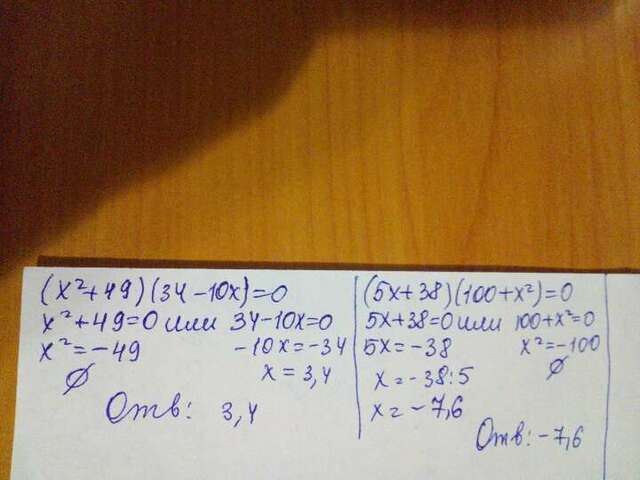 (x²+49)(34-10x)=0
x²+49=0 или 34-10x=0
x²=-49 -10x=-34
∅ x=3,4
Отв: 3,4
(5x+38)(100+x²)=0
5x+38=0 или 100+x²=0
5x=-38 x²=-100
x=-38:5 ∅
x=-7,6
Отв: -7,6